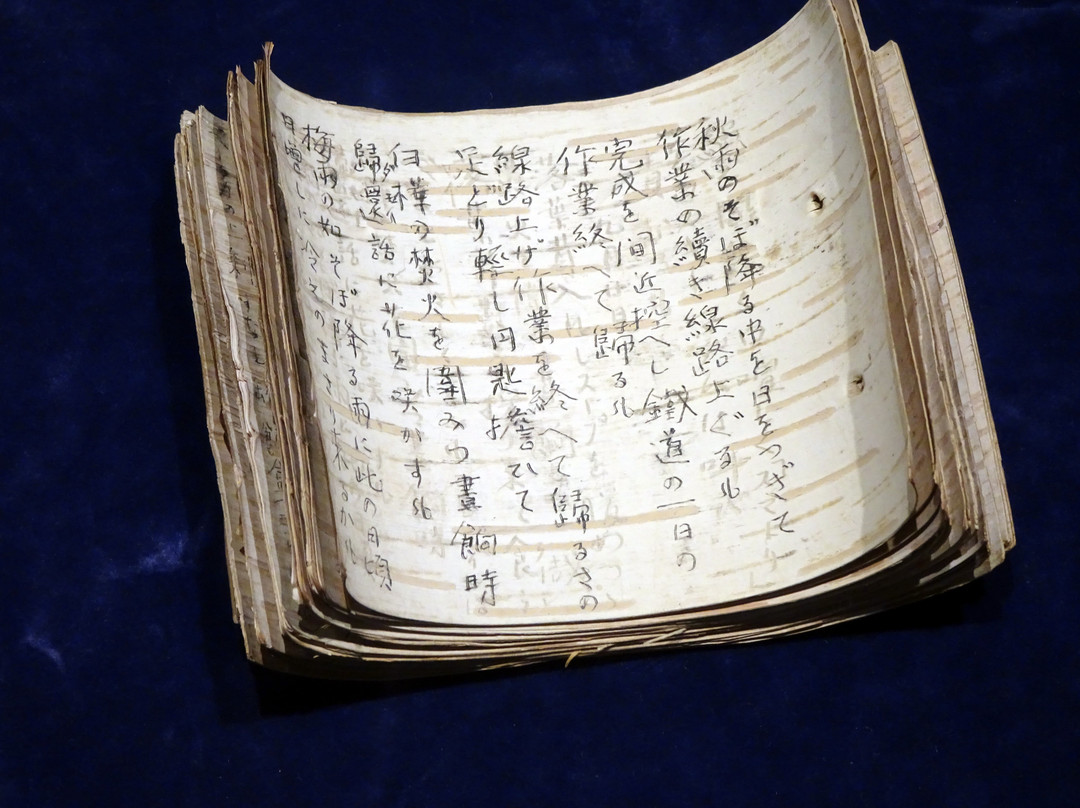 秋雨のそぼ降る中を日をつぎて
作業の續き線路上げるル
完成を間近控へし鐵道の一日の
作業終へて歸るル
線路上げ作業を終へて歸るさの
足どり輕し円匙担ひて
白華の焚火を圍みつ晝餉時
歸還話に花を咲かすル
梅雨の如そぼ降る雨に此の日頃
日増しに冷えのまさり来るかル